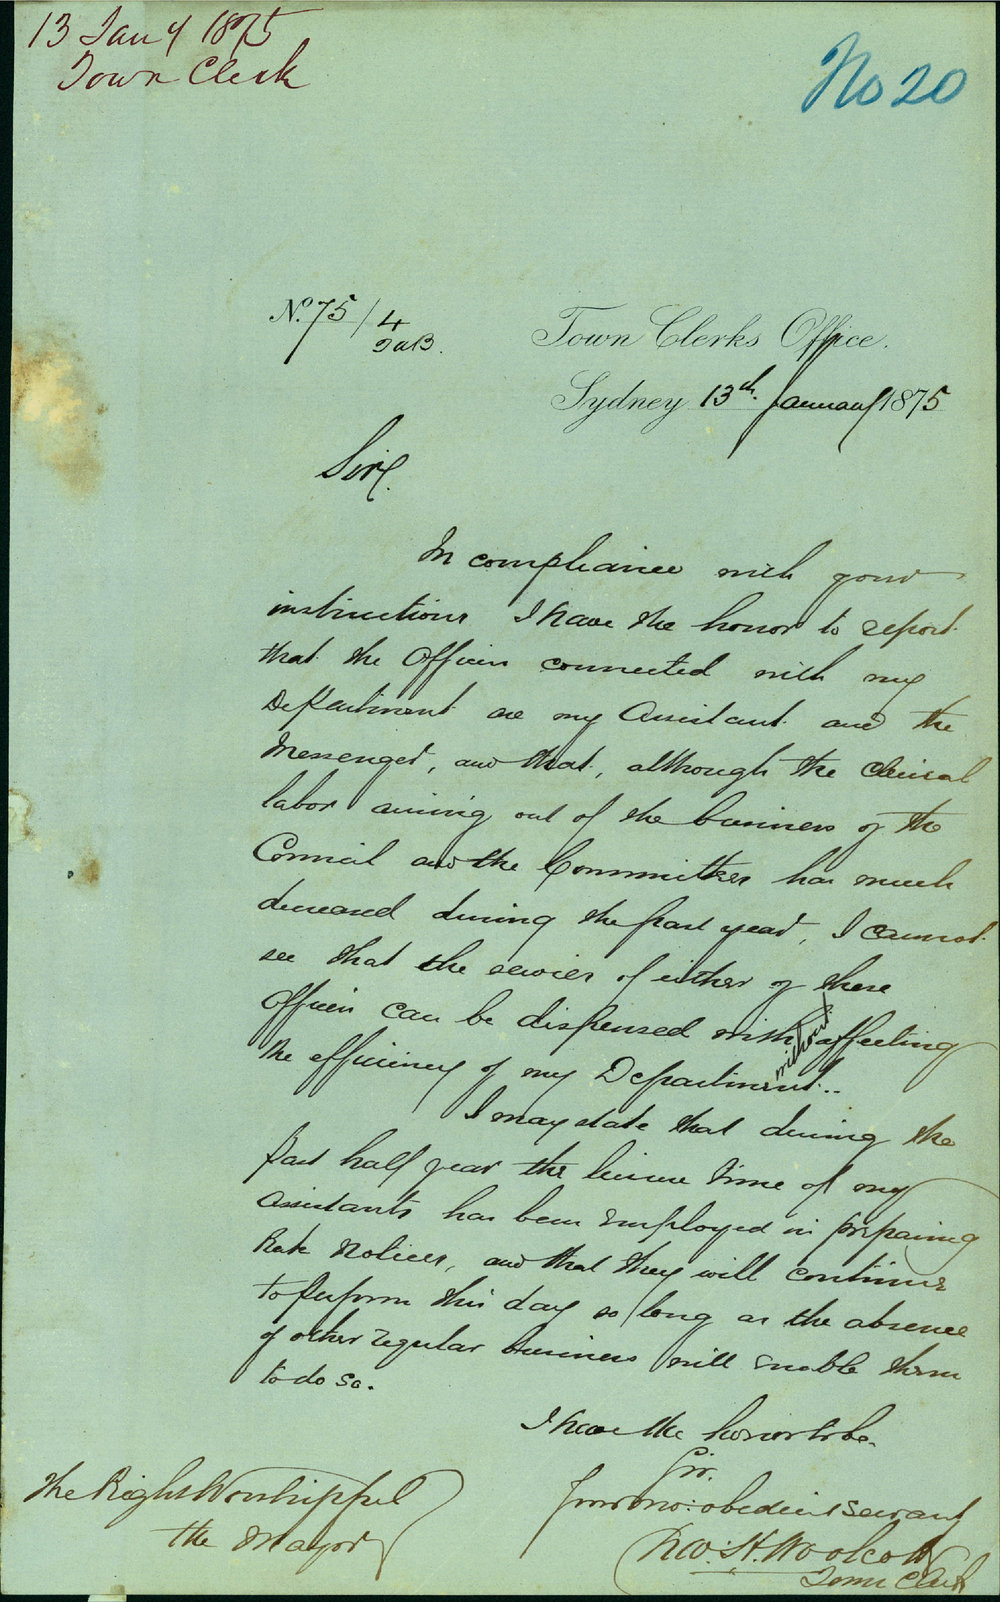 13 Jany 1875
Town Clerk
No 20
No. 75/4
Town Clerks Office.
Sydney 13th January 1875
Sir,
In compliance with your
instructions I have the honor to report
that the Officers connected with my
Department are my Assistant and the
Messenger, and that, although the clerical
labor arising out of the business of the
Council and the Committees has much
decreased during the past year, I cannot
see that the services of either of these
Officers can be dispensed with without affecting
the efficiency of my Department.
I may state that during the
past half year the leisure time of my
Assistants has been employed in preparing
Rate Notices, and that they will continue
to perform this day so long as the absence
of other regular business will enable them
to do so.
I have the honor to be.
Sir.
Your mo: obedient servant
Chas. H. Woolcott
Town Clerk
The Right Worshipful
the Mayor